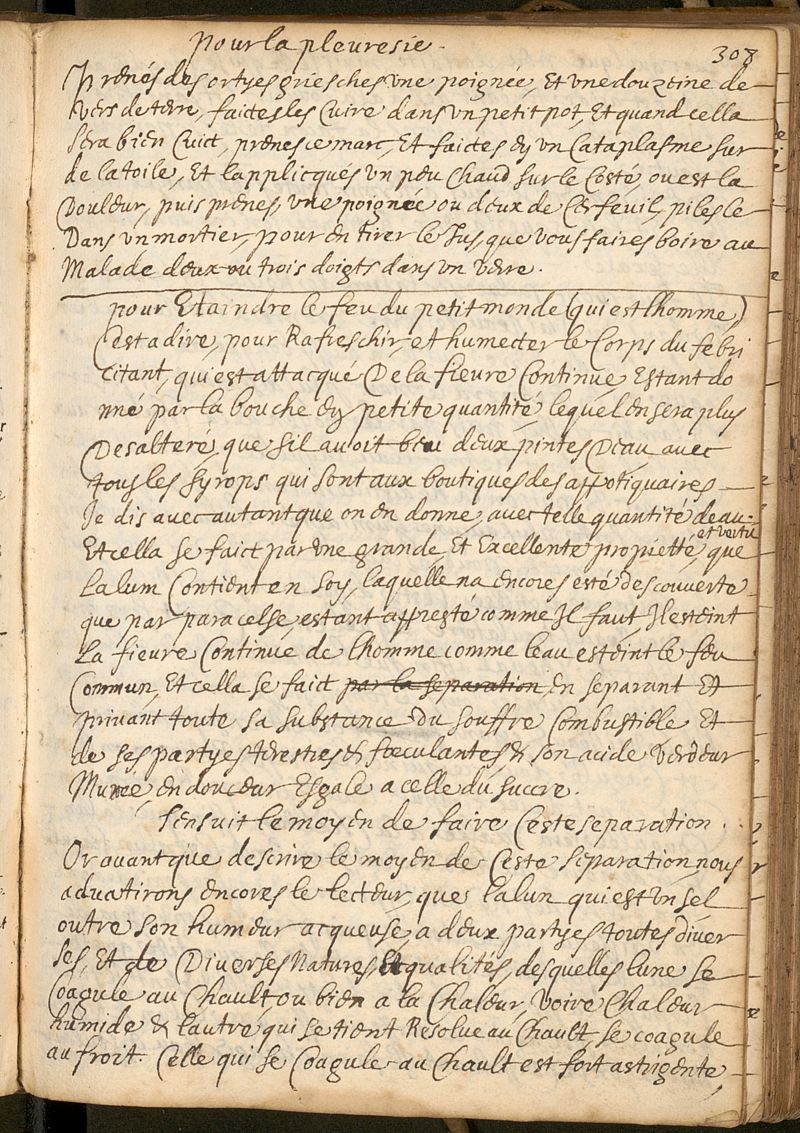 pour la pleuresie.
308
Prenés des ortyes griesches une poignée, Et une douzeine de
vers de terre, faictes les Cuire dans un petit pot, Et quand cella
sera bien Cuict, prenes ce marc, Et faictes en un Cataplasme sur
de la toile, Et l'applicqués un peu Chaud sur le Costé, ou est la
Douleur, puis prenes, une poignée ou deux de Cerfeuil, piles le
Dans un mortier, pour en tirer le Jus que vous faires boire au
Malade deux ou trois doigts dans un verre.
pour Etaindre le feu du petit monde (qui est lhomme)
Cest a dire, pour Rafreschir, et humecter le Corps du febri
citant, qui est attacqué De la fieure Continue, Estant do
nné par la bouche en petite quantité, lequel en sera plus
Desalteré, que sil auoit beu deux pintes Deau, avec
tous les syrops qui sont aux boutiques des appotiquaires
Je dis avec autant que on en donne, avec telle quantité deau.
et vertu
Et cella se faict par une grande, Et Excellente propietté, que
Lalum Contient en soy, laquelle na encores esté descouverte
que par paracelse, estant appresté comme Il faut, Il esteint
La fieure Continue de lhomme comme leau esteint le feu
Commun, Et cella se faict par la separation, en separant Et
privant toute sa substance Du souffre Combustible Et
de ses partyes terestres & fœculantes & son acide verdeur
Muree, en douceur Esgale a celle du succre.
Sensuit le moyen de faire Ceste separation.
Or avant que descrire le moyen de Ceste separation, nous
advatirons encores le lecteur, que lalun qui est un sel
outre son humeur acqueuse, a deux partyes toutes diver
ses, Et de Diverses Natures, Et qualités, desquelles lune se
Coagule au Chault, ou bien a la Chaleur, voire Chaleur
humide & lautre qui se tient Resolue au Chault se coagule
au froit. Celle qui se Coagule au Chault est fort astrigente,